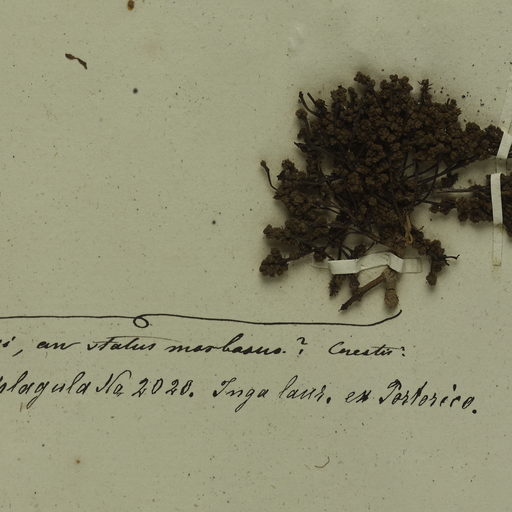 an status morbosus? 
plagula No 2020. Inga laur. ex Portorico.